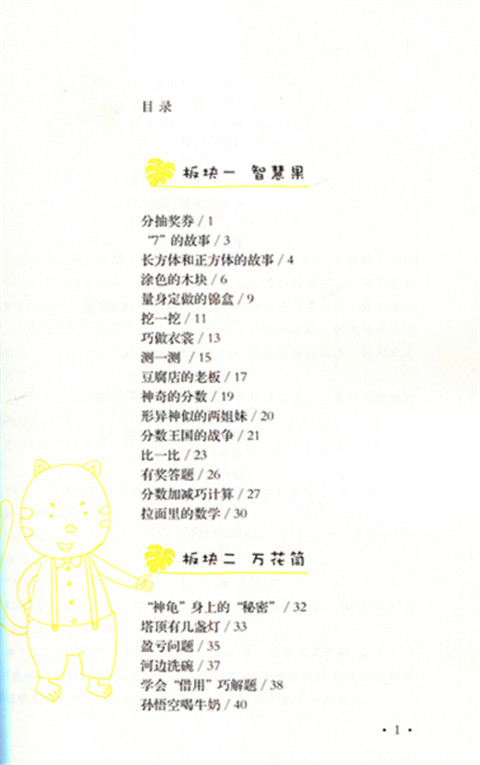 目 录
板块一 智慧果
分抽奖券 / 1
“7”的故事 / 3
长方体和正方体的故事 / 4
涂色的木块 / 6
量身定做的锦盒 / 9
挖一挖 / 11
巧做衣裳 / 13
测一测 / 15
豆腐店的老板 / 17
神奇的分数 / 19
形异神似的两姐妹 / 20
分数王国的战争 / 21
比一比 / 23
有奖答题 / 26
分数加减巧计算 / 27
拉面里的数学 / 30
板块二 万花筒
“神龟”身上的“秘密” / 32
塔顶有几盏灯 / 33
盈亏问题 / 35
河边洗碗 / 37
学会“借用”巧解题 / 38
孙悟空喝牛奶 / 40
· 1 ·